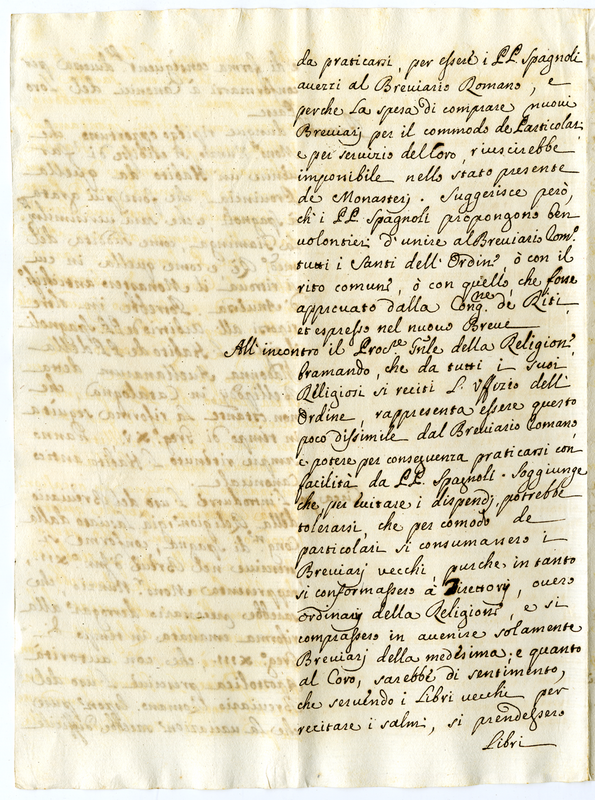 da praticarsi, per essere i PP. Spagnoli
avezzi al Breviario Romano, e
perche la spesa di comprare nuovi
Breviarj per il commodo de Particolari
e per servizio del Coro, riuscirebbe
imponibile nello stato presente
de Monasterj. Suggerisce però,
ch'i PP. Spagnoli propongono ben
volontieri d'unire al Breviario Rom.º
tutti i Santi dell'Ordin.e, ò con il
rito comun.e, ò con quello, che fosse
approvato dalla Cong.ne de Riti,
et espresso nel nuovo Breve
All'incontro il Proc.re Gñle della Religion.e
bramando, che da tutti i suoi
Religiosi si reciti l'Uffizio dell'
Ordine, rappresenta essere questo
poco dissimile dal Breviario Romano
e potere per conseguenza praticarsi con
facilità da PP. Spagnoli. Soggiunge
che, per evitare i dispendj, potrebbe
tolerarsi, che per comodo de
particolari si consumassero i
Breviarj vecchi, purche in tanto
si conformassero à Directorj, overo
Ordinarj della Religion.e, e si
comprassero in avenire solamente
Breviarj della medesima: e quanto
al Coro, sarebbe di sentimento,
che servendo i Libri vecchi per
recitare i salmi, si prendessero
Libri